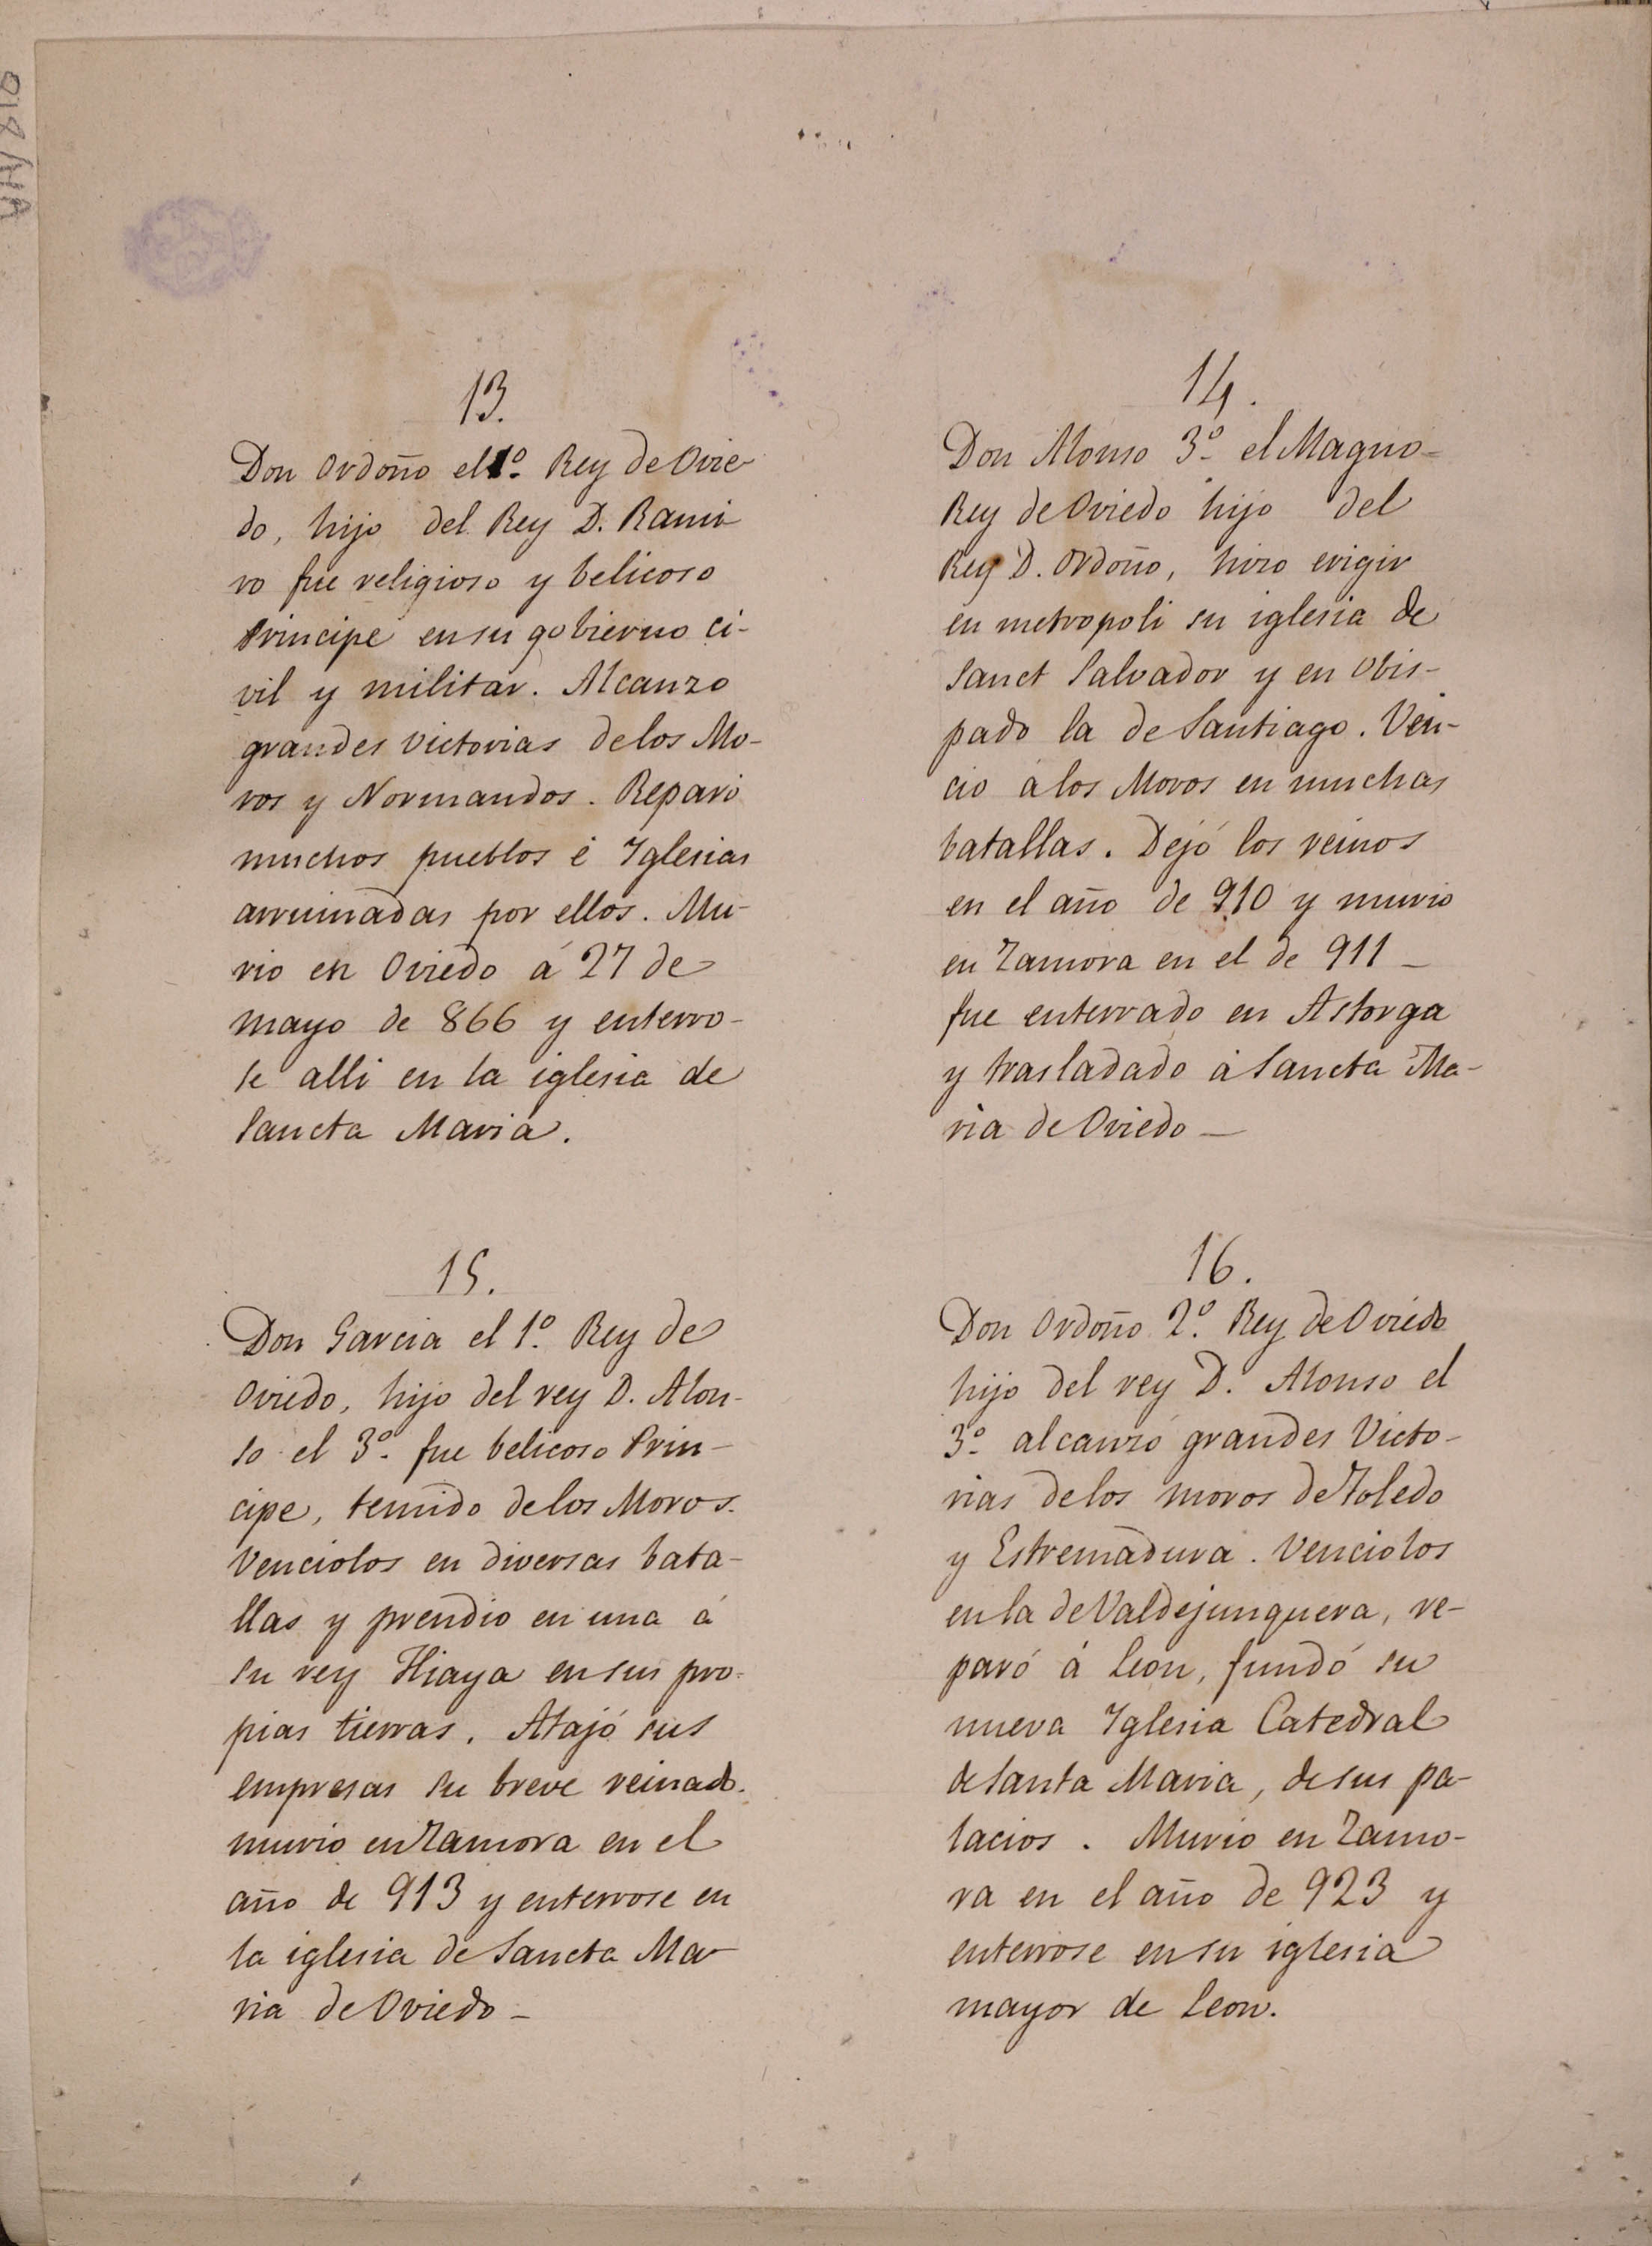 13.
Don Ordoño el 1º Rey de Ovie
do, hijo del Rey D. Rami
ro fue religioso y belicoso
Principe en su gobierno ci-
vil y militar. Alcanzo
grandes victorias delos Mo-
ros y Normandos. Reparó
muchos pueblos é Yglesias
arruinadas por ellos. Mu-
rio en Oviedo á 27 de
mayo de 866 y enterro-
se alli en la iglesia de
Sancta Maria.
14.
Don Alonso 3º el Magno-
Rey de Oviedo hijo del
Rey D. Ordoño, hizo erigir
en metropoli su iglesia de
Sanct Salvador y en Obis-
pado la de Santiago. Ven-
cio á los Moros en muchas
batallas. Dejó los reinos
en el año de 910 y murio
en Zamora en el de 911 _
fue enterrado en Astorga
y trasladado á Sancta Ma-
ria de Oviedo _
15.
Don Garcia el 1º Rey de
Oviedo, hijo del rey D. Alon-
so el 3º fue belicoso Prin-
cipe, temido delos Moros.
Venciolos en diversas bata-
llas y prendio en una á
su rey Hiaya en sus pro-
pias tierras. Atajó sus
empresas su breve reinado.
murio en Zamora en el
año de 913 y enterrose en
la iglesia de Sancta Ma-
ria de Oviedo _
16.
Don Ordoño 2º Rey de Oviedo
hijo del rey D. Alonso el
3º alcanzó grandes Victo-
rias delos moros de Toledo
y Estremadura. Venciolos
en la de Valdejunquera, re-
paró á Leon, fundó su
nueva Yglesia Catedral
de Santa Maria, de sus pa-
lacios. Murio en Zamo-
ra en el año de 923 y
enterrose en su iglesia
mayor de Leon.